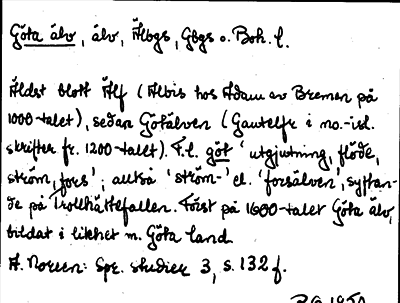 Göta älv, älv, Älvbgs, Gbgs o. Boh. l.
Äldst blott Älf (Albis hos Adam av Bremen på
1000-talet), sedan Götälven (Gautelfr i no.-isl.
skrifter fr. 1200-talet). F.l. göt 'utgjutning, flöde,
ström, fors'; alltså 'ström-' el. 'forsälven', syftan-
de på Trollhättefallen. Först på 1600-talet Göta älv,
bildat i likhet m. Göta land.
A. Noreen: Spr. studier 3, s. 132 f.